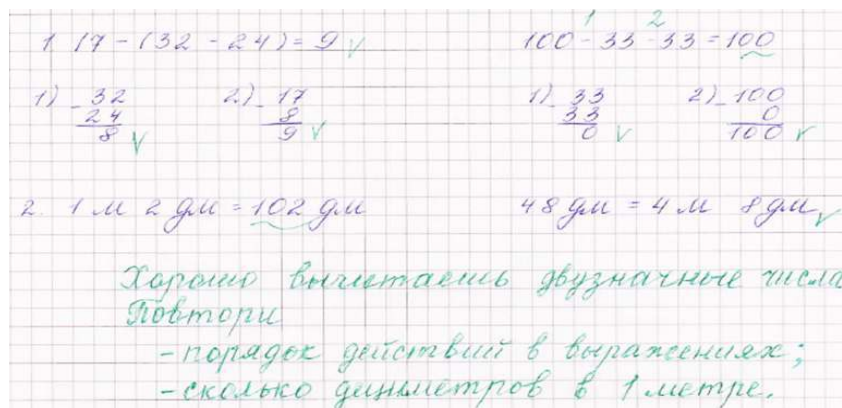 1. 17 - (32 - 24) = 9 v 100 - 33 - 33 = 100
1 2
1) - 32 2) - 17 1) - 33 2) - 100
24 8 33 0
8 v 9 v 0 v 100 v
2. 1 м 2 дм = 102 дм 48 дм = 4 м 8 дм v
Хорошо вычитаешь двузначные числа
Повтори
- порядок действий в выражениях;
- сколько дециметров в 1 метре.